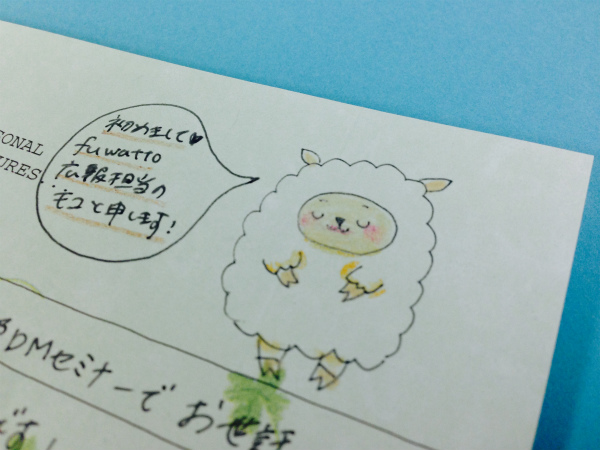 ONAL
URES
初めまして♥
fuwatto
広報担当の
モコと申します!
DMセミナーで お世話
です!